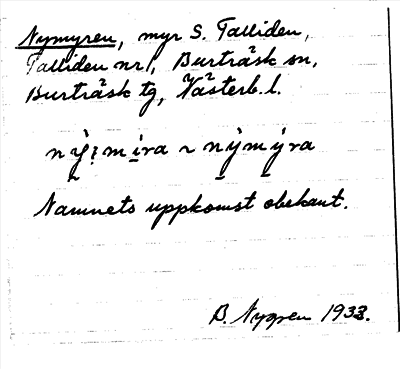 Nymyren, myr S. Talliden,
Talliden nr 1, Burträsk sn,
Burträsk tg, Västerb. l.
Namnets uppkomst obekant.
B. Nygren 1933.